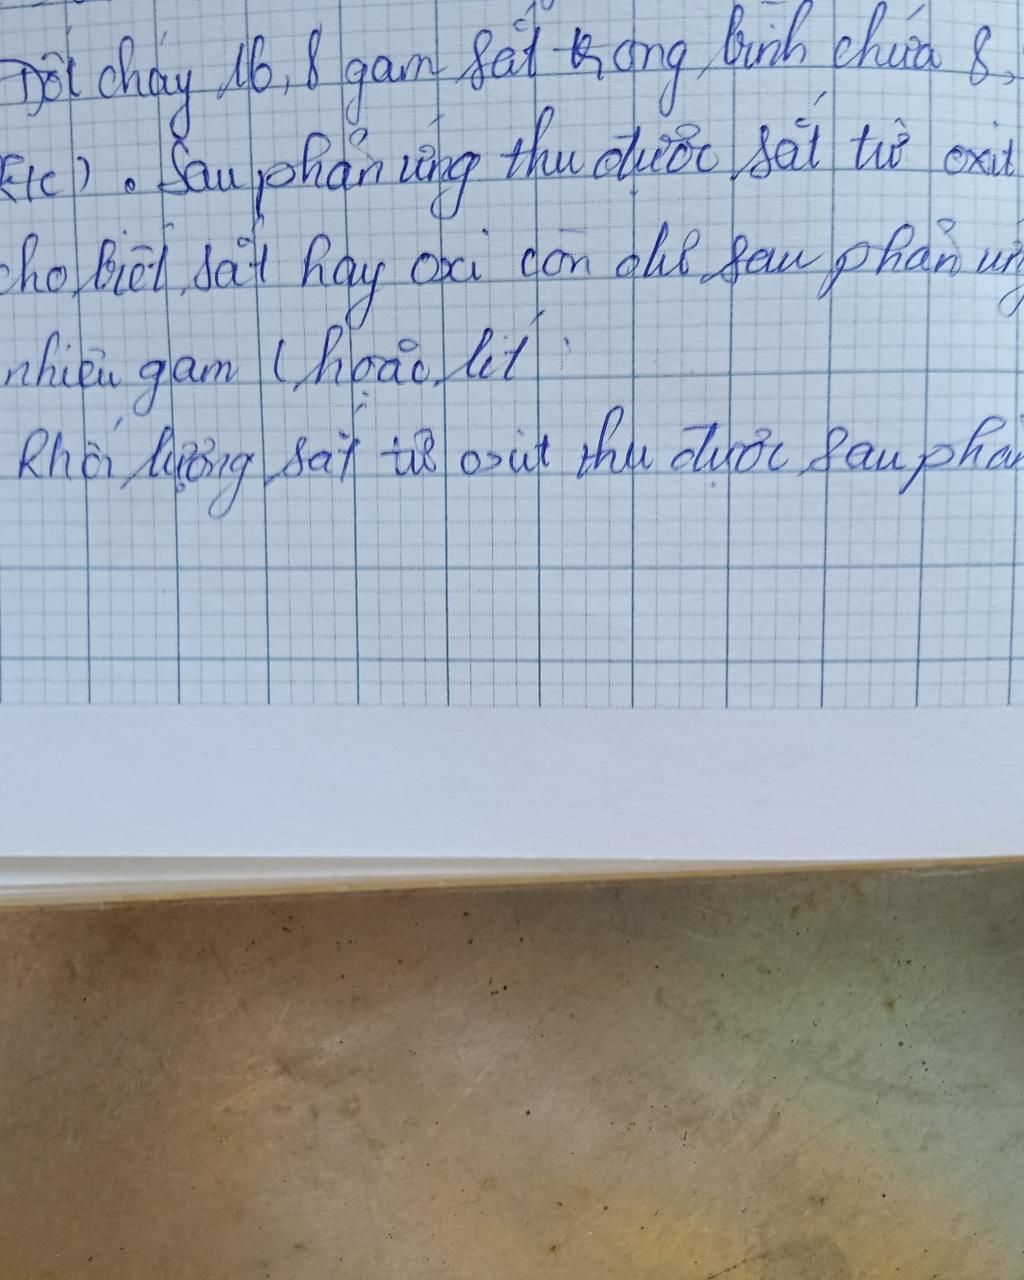 Đốt cháy 16,8 gam sắt trong bình chứa 8,
Đktc). Sau phản ứng thu được sắt từ oxit
cho biết sắt hay oxi còn dư sau phản ứng
nhiêu gam (hoặc lít
Khối lượng sắt từ oxit thu được sau phản